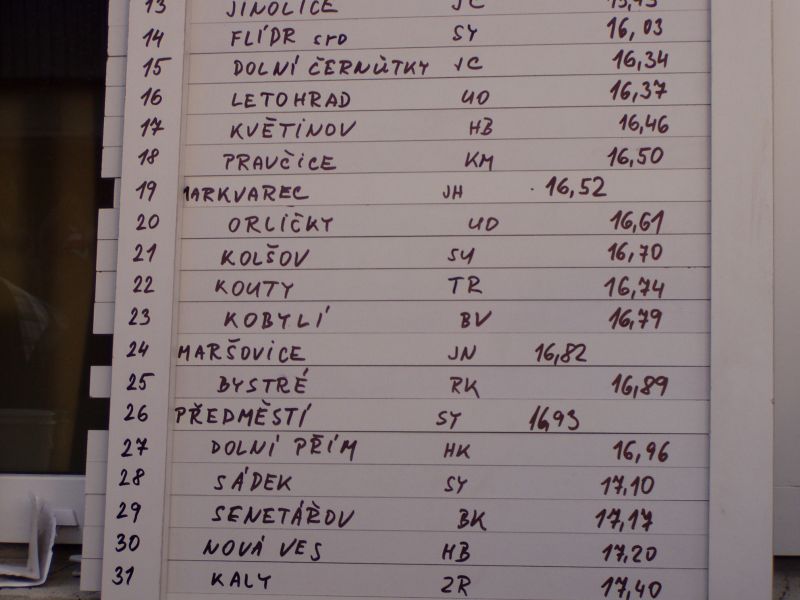 13 JINOLICE JC
14 FLÍDR sro SY 16,03
15 DOLNÍ ČERNŮTKY JC 16,34
16 LETOHRAD UO 16,37
17 KVĚTINOV HB 16,46
18 PRAVČICE KM 16,50
19 MARKVAREC JH 16,52
20 ORLÍČKY UO 16,61
21 KOLŠOV SU 16,70
22 KOUTY TR 16,74
23 KOBYLÍ BV 16,79
24 MARŠOVICE JN 16,82
25 BYSTRÉ RK 16,89
26 PŘEDMĚSTÍ SY 16,93
27 DOLNÍ PŘÍM HK 16,96
28 SÁDEK SY 17,10
29 SENETÁŘOV BK 17,17
30 NOVÁ VES HB 17,20
31 KALY ZR 17,40